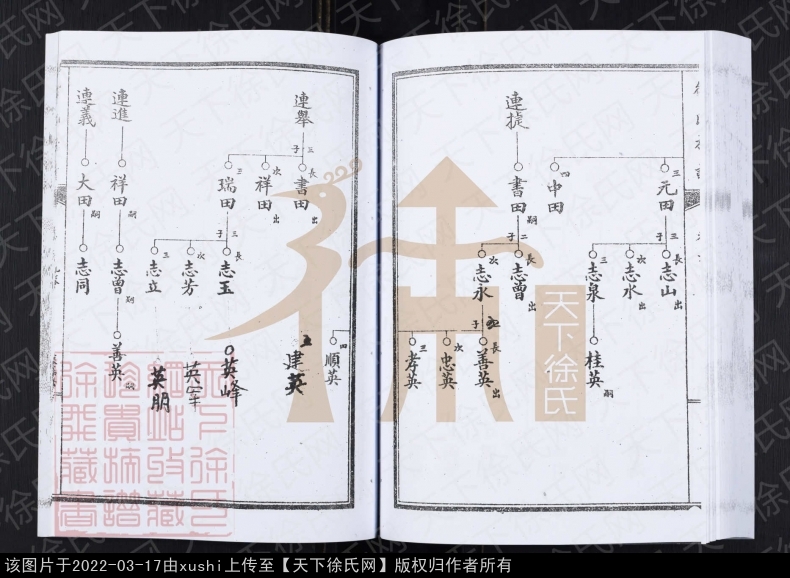 三
元田
三
子
長
志山
出
次
志水
出
三
志泉
桂英
嗣
四
中田
連捷
書田
嗣
二
子
長
志曾
出
次
志永
五
子
長
善英
出
次
忠英
三
孝英
四
順英
五
建英
連舉
三
子
長
書田
出
次
祥田
出
三
瑞田
三
子
長
志玉
次
志芳
三
志立
英峰
英軍
英朋
連進
祥田
嗣
志曾
嗣
善英
嗣
連義
大田
嗣
志同
天下徐氏
天下徐氏网
该图片于2022-03-17由xushi上传至【天下徐氏网】版权归作者所有